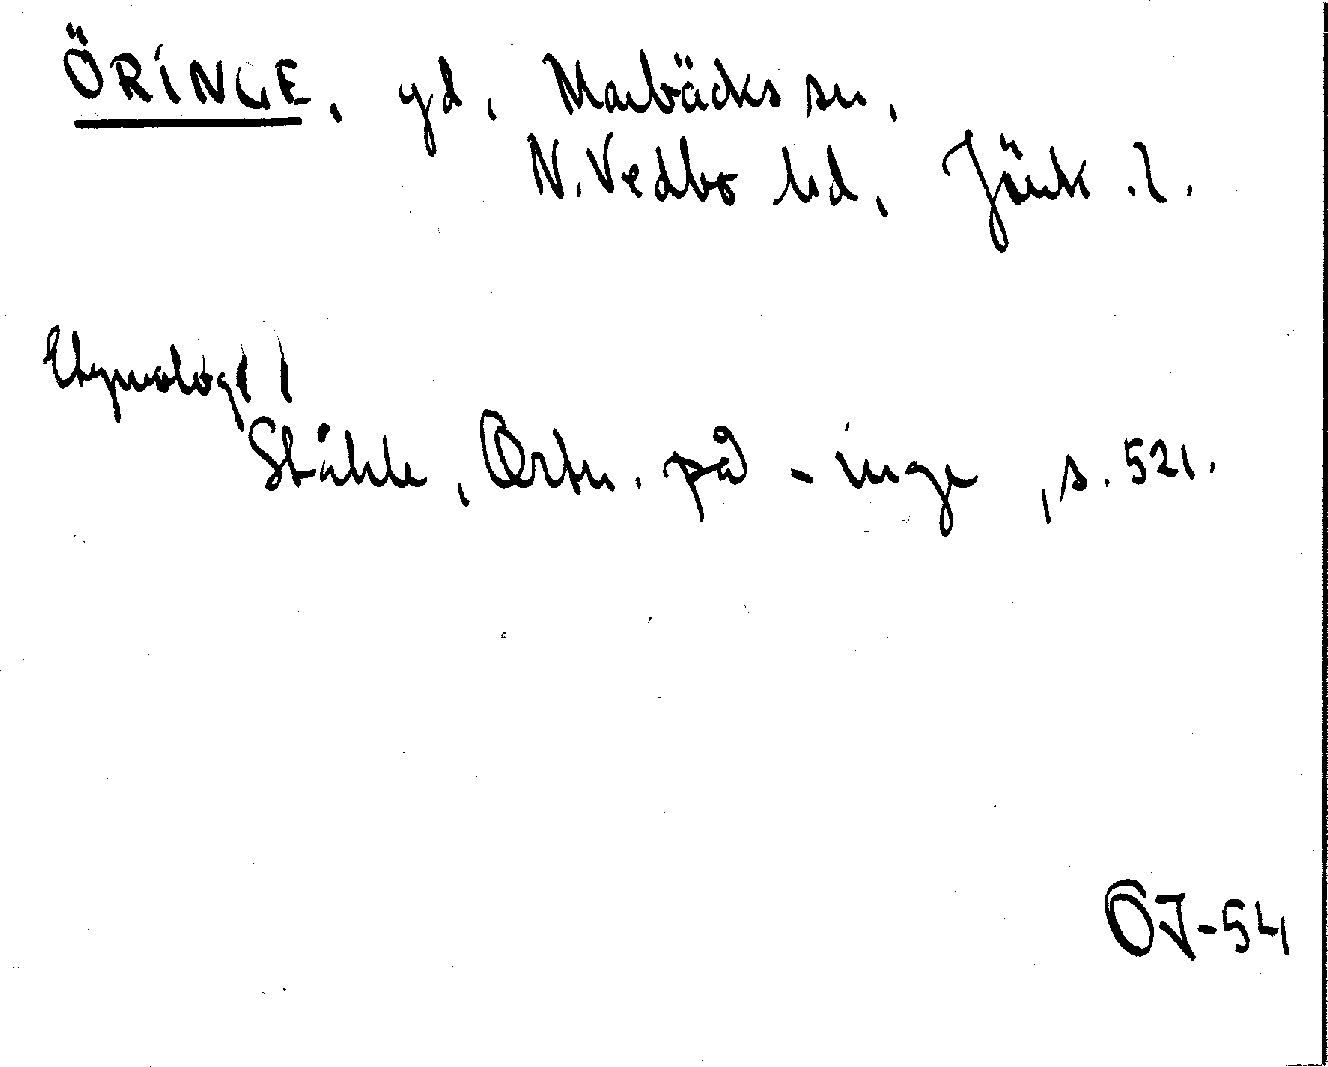 ÖRINGE, gd, Marbäcks sn,
N. Vedbo hd, Jönk. l.
Etymologi
Ståhle, Ortn. på -inge, s. 521.
OJ-54